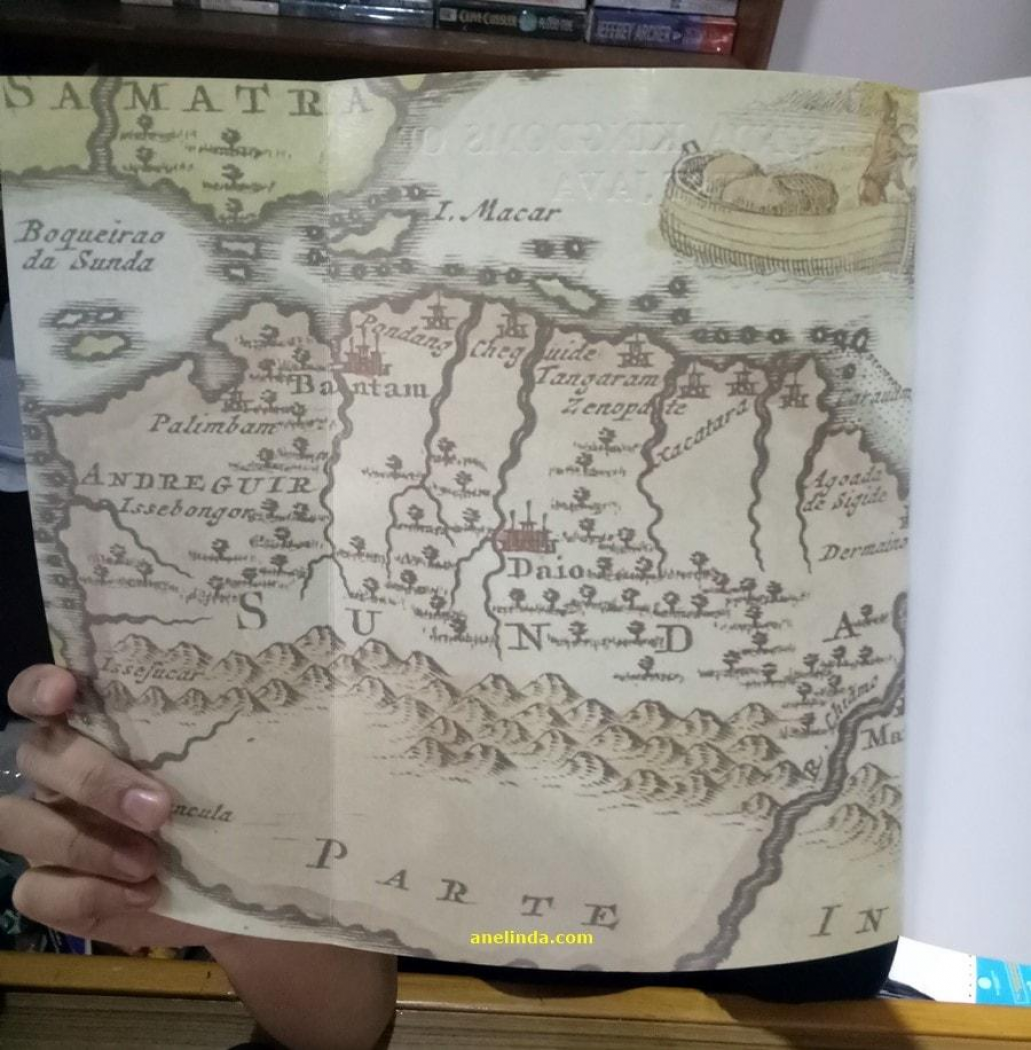 CLIVE CUSSLER
JEFFREY ARCHER
SAMATRA
I. Macar
Boqueirao
da Sunda
Pondang
Cheguide
Tangaram
Bantam
Palimbam
Xacatara
ANDREGUIR
Issebongor
Agoada
de Sigide
Dermaino
Daio
SUNDA
Issesucar
R. Chiamo
Ma
ncula
PARTE
IN
anelinda.com